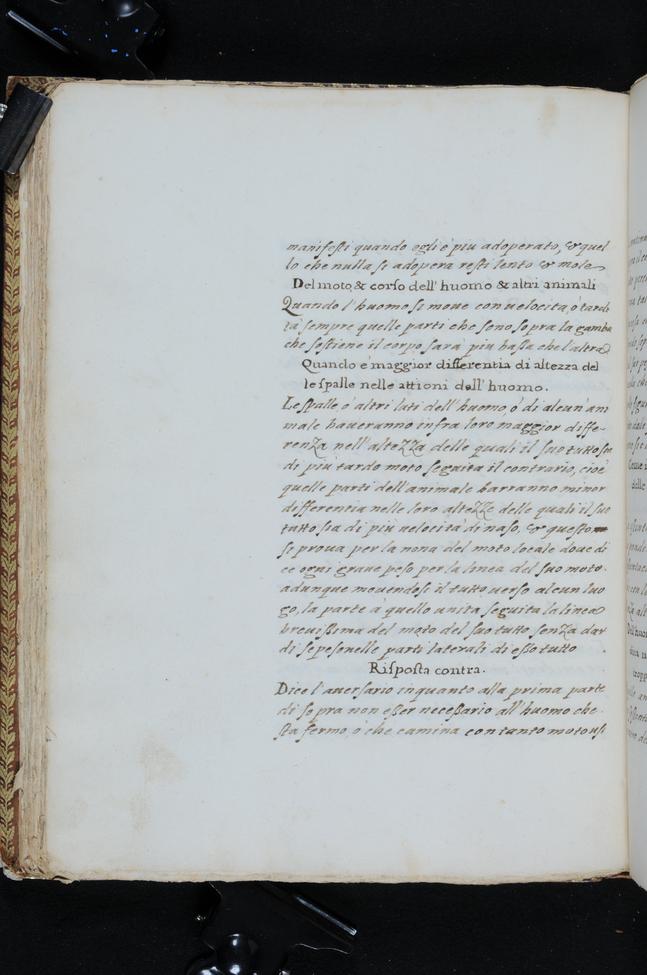 manifesti quando egli è più adoperato, & quel
lo che nulla si adopera resti lento & mole
Del moto, & corso dell' huomo & altri animali
Quando l'huomo si moue con velocita, ò tardi
tà sempre quelle parti che sono sopra la gamba
che sostiene il corpo sarà più bassa che l'altra
Quando è maggior differentia di altezza del
le spalle nelle attioni dell' huomo.
Le spalle, ò altri lati dell'huomo, ò di alcun'ani
male haueranno infra loro maggior diffe-
renza nell'altezza delle quali il suo tutto sia
di più tardo moto seguita il contrario, cioè
quelle parti dell'animale harranno minor
differentia nelle loro altezze delle quali il suo
tutto sia di più uelocità di naso, & questo
si proua per la nona del moto locale doue di
ce ogni graue peso per la linea del suo moto.
adunque mouendosi il tutto uerso alcun luo
go, la parte à quello unita seguita la linea
breuissima del moto del suo tutto senza dar
di se peso nelle parti laterali di esso tutto
Risposta contra.
Dice l'auersario inquanto alla prima parte
di sopra non esser necessario all'huomo che
sta fermo, ò che camina con tanto moto usi